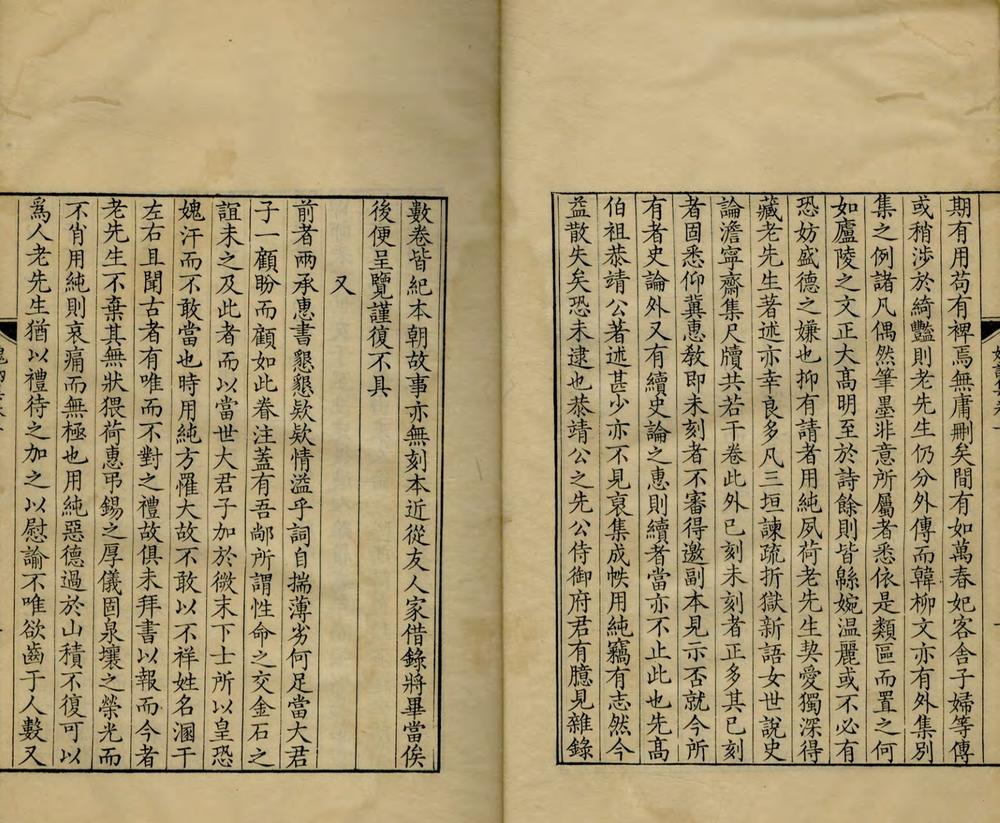 期有用苟有裨焉無庸刪矣間有如萬春妃客舍子婦等傳
或稍涉於綺豔則老先生仍分外傳而韓柳文亦有外集別
集之例諸凡偶然筆墨非意所屬者悉依是類區而置之何
如廬陵之文正大高明至於詩餘則皆緜婉温麗或不必有
恐妨盛德之嫌也抑有請者用純夙荷老先生契愛獨深得
藏老先生著述亦幸良多凡三垣諫疏折獄新語女世說史
論澹寧齋集尺牘共若干卷此外已刻未刻者正多其已刻
者固悉仰兾惠敎即未刻者不審得邀副本見示否就今所
有者史論外又有續史論之惠則續者當亦不止此也先高
伯祖恭靖公著述甚少亦不見裒集成帙用純竊有志然今
益散失矣恐未逮也恭靖公之先公侍御府君有臆見雜錄
數卷皆紀本朝故事亦無刻本近從友人家借錄將畢當俟
後便呈覽謹復不具
又
前者兩承惠書懇懇欵欵情溢乎詞自揣薄劣何足當大君
子一顧盼而顧如此眷注蓋有吾鄰所謂性命之交金石之
誼未之及此者而以當世大君子加於微末下士所以皇恐
媿汗而不敢當也時用純方罹大故不敢以不祥姓名溷干
左右且聞古者有唯而不對之禮故俱未拜書以報而今者
老先生不棄其無狀猥荷惠弔錫之厚儀固泉壤之榮光而
不肖用純則哀痛而無極也用純惡德過於山積不復可以
爲人老先生猶以禮待之加之以慰諭不唯欲齒于人數又